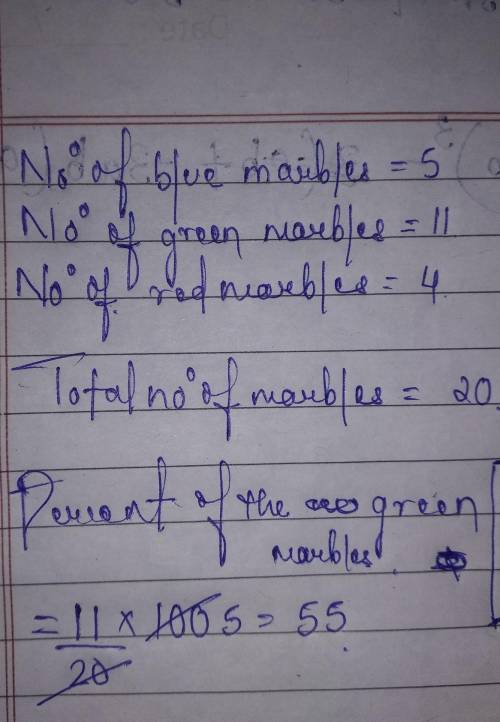 No° of blue marbles = 5
No° of green marbles = 11
No° of red marbles = 4
Total no° of marbles = 20.
Percent of the green
marbles.
= 11 × 100 5 = 55.
20